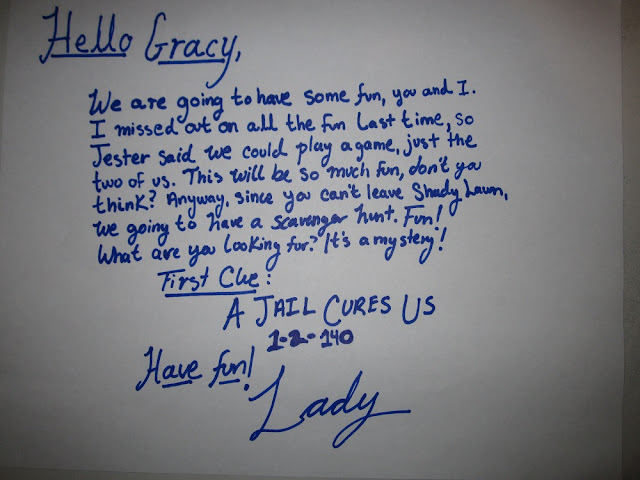 Hello Gracy,
We are going to have some fun, you and I.
I missed out on all the fun last time, so
Jester said we could play a game, just the
two of us. This will be so much fun, don't you
think? Anyway, since you can't leave Shady Lawn,
we going to have a scavenger hunt. Fun!
What are you looking for? It's a mystery!
First Clue:
A JAIL CURES US
1-2-140
Have fun!
Lady